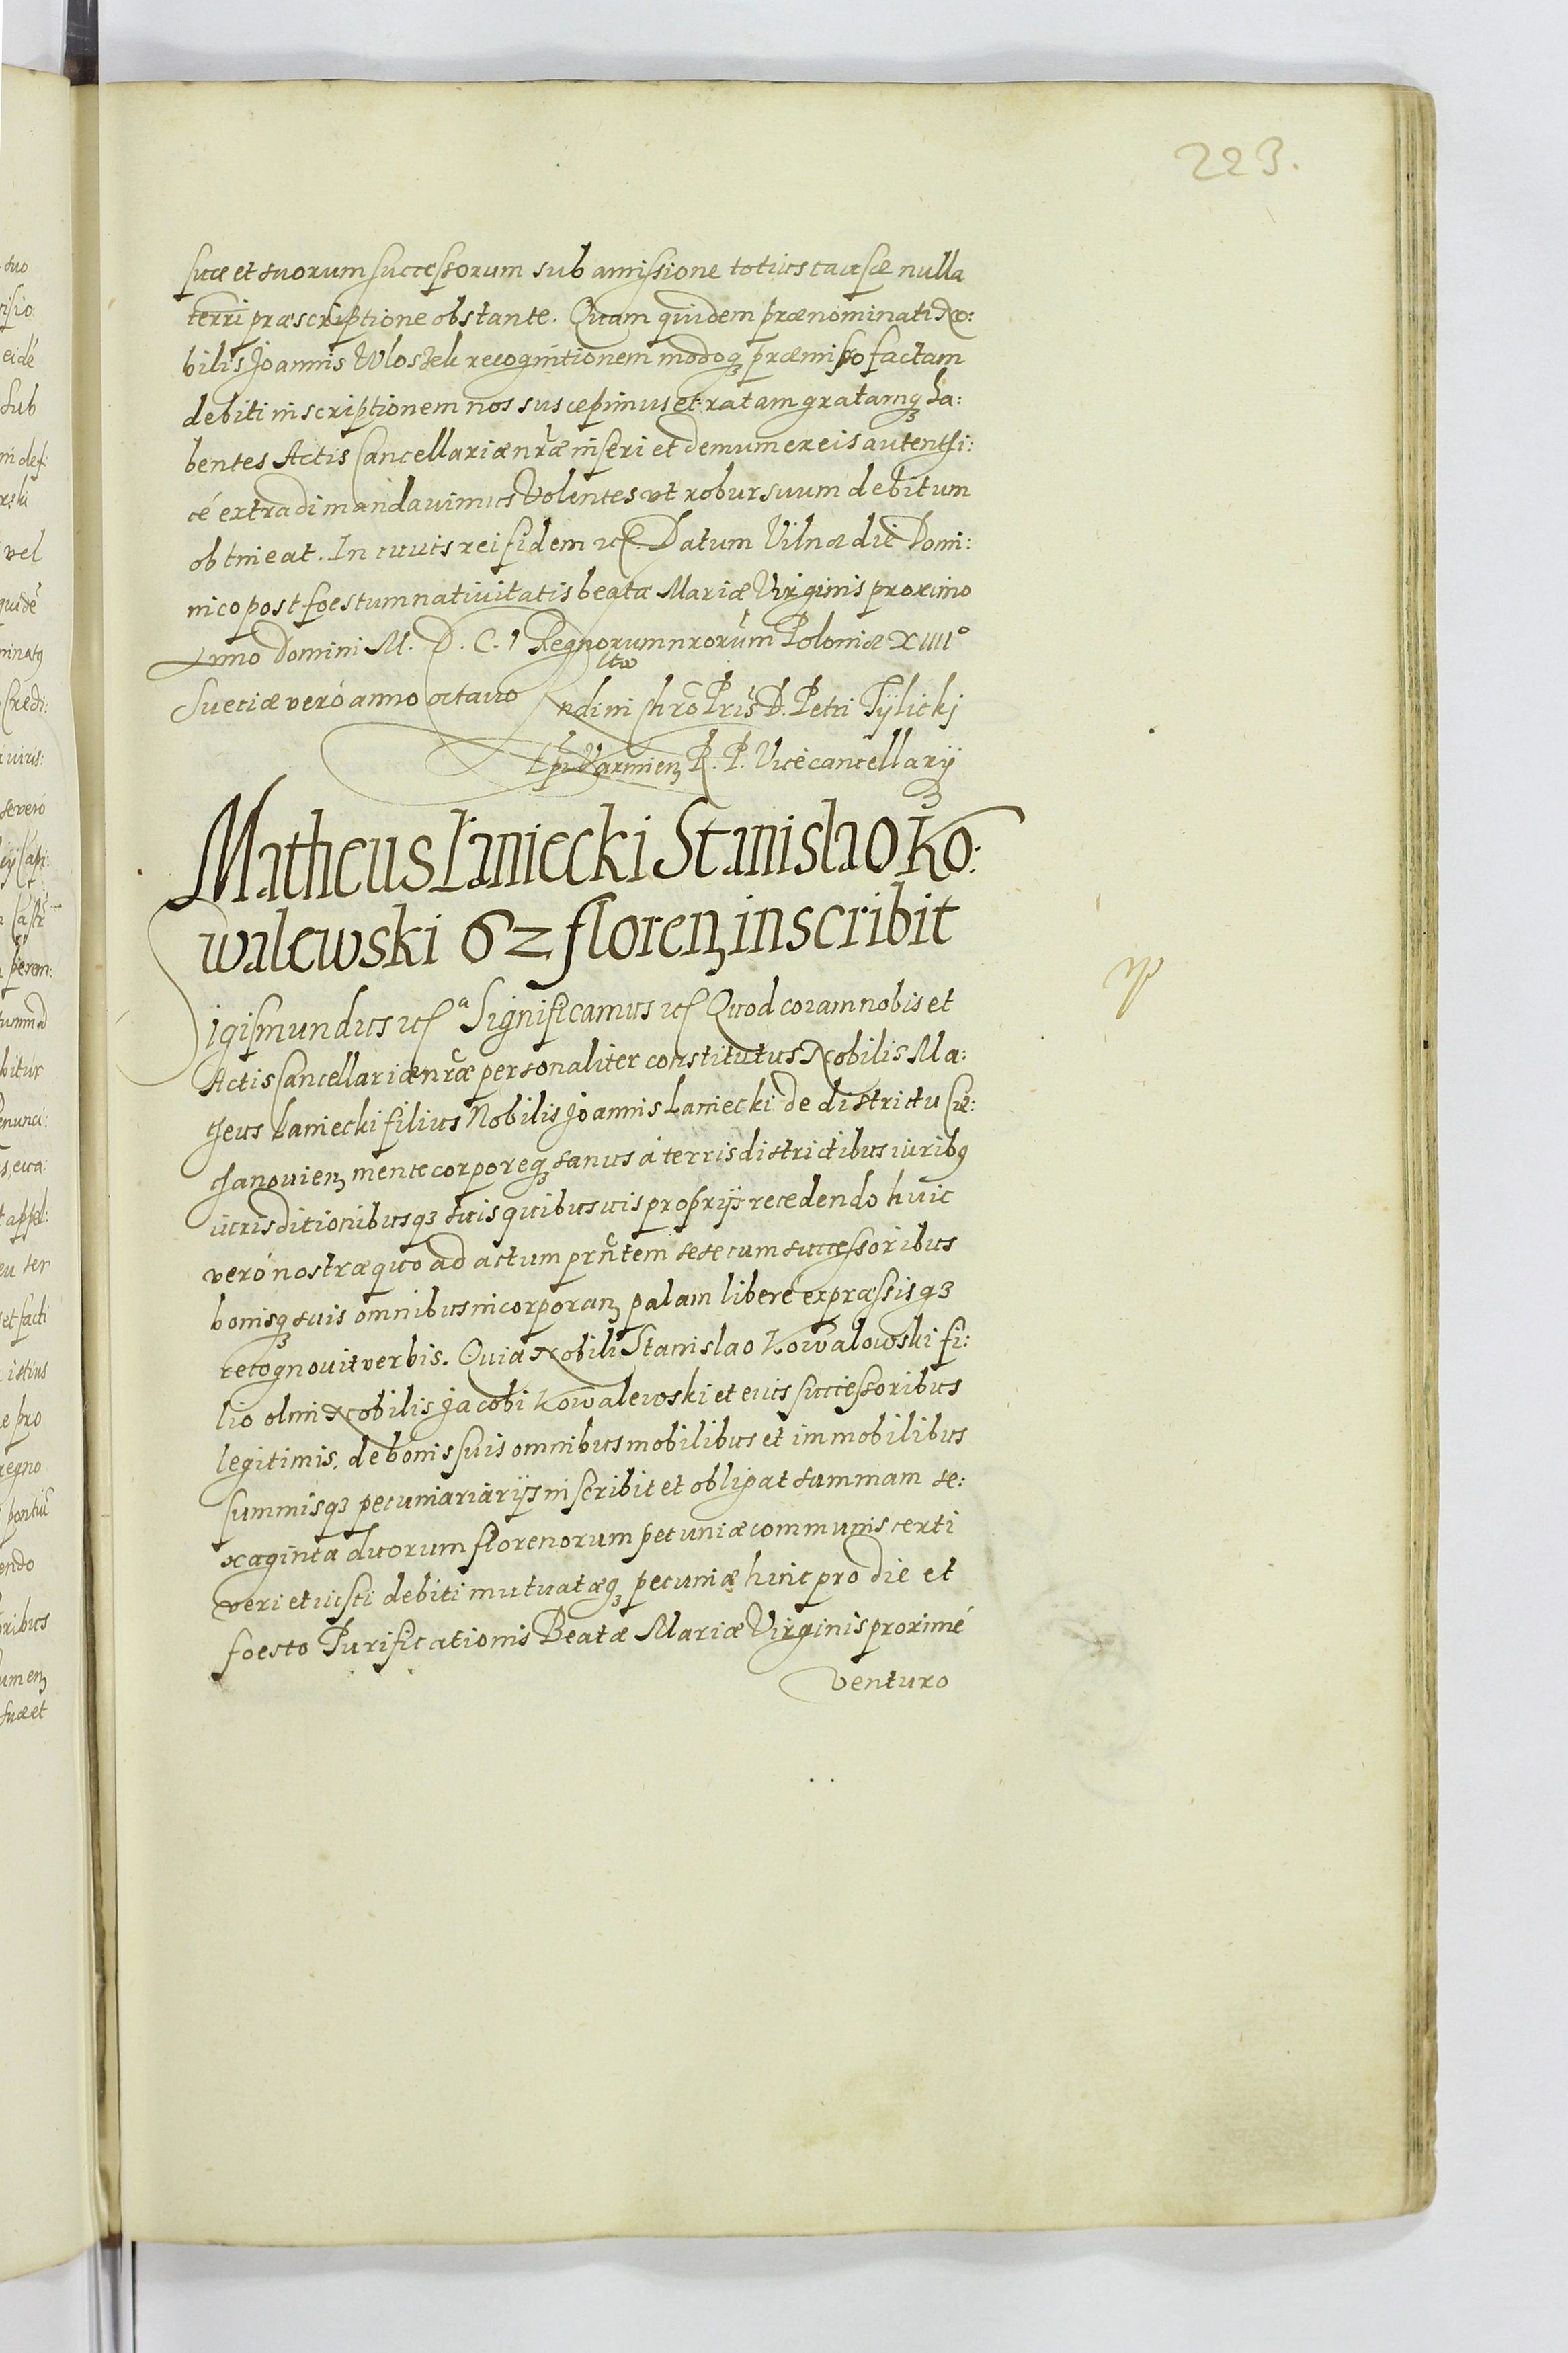 223.
suæ et suorum successorum sub amissione totius causæ nulla
terri præscriptione obstante. Quam quidem prænominati No:
bilis Joannis Wlostek recognitionem modoq præmisso factam
debiti inscriptionem nos suscepimus et ratam gratamq ha:
bentes Actis Cancellariæ nræ inseri et demum ex eis autenthi:
cé extradi mandauimus Volentes vt robur suum debitum
obtineat. In cuius rei fidem etc. Datum Vilnæ die Domi:
nico post foestum natiuitatis beatæ Mariæ Virginis proximo
Anno Domini M. D. C. 1 Regnorum nrorum Poloniæ XIIII°
Sueciæ veró anno octauo
ndi in Chro Pris D. Petri Tÿlickj
Epi Varmien R. P. Vicécancellarÿ
Mattheus Laniecki Stanislao Ko:
walewski 62 floren inscribit
Sigismundus etc a Significamus etc Quod coram nobis et
Actis Cancellariæ nræ personaliter constitutus Nobilis Ma:
theus Laniecki filius Nobilis Joannis Laniecki de districtu Cie:
chanouien mente corporeq sanus á terris districtibus iuribq
iurisditionibusq suis quibusuis proprijs recedendo huic
veró nostræ quo ad actum prntem sese cum successoribus
bonisq suis omnibus incorporan palam liberé expræssisq
recognouit verbis. Quia Nobili Stanislao Kowalowski fi:
lio olim Nobilis Jacobi Kowalewski et eius successoribus
legitimis, de bonis suis omnibus mobilibus et immobilibus
summisq pecuniariarijs inscribit et obligat summam se:
xaginta duorum florenorum pecuniæ communis certi
veri et iusti debiti mutuatæq pecuniæ hinc pro die et
foesto Purificationis Beatæ Mariæ Virginis proximé
venturo